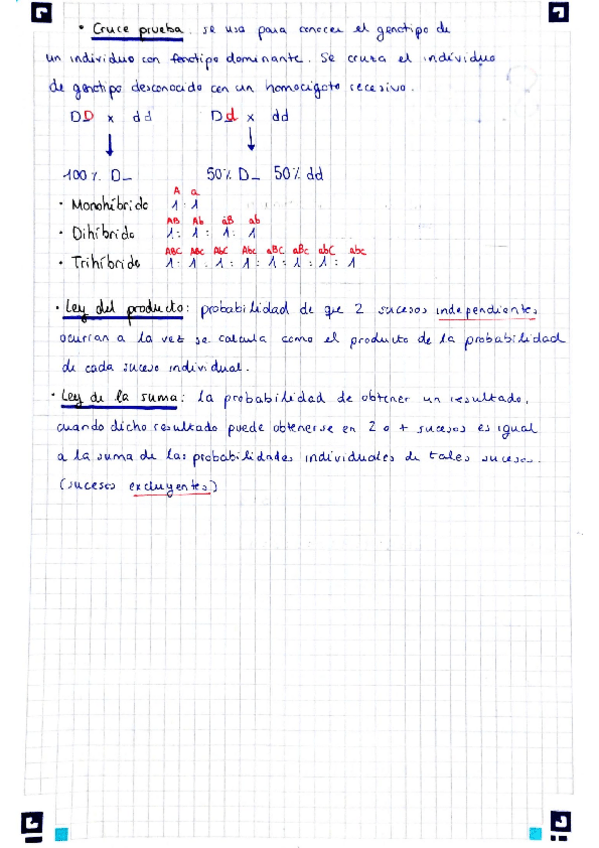 · Cruce prueba. se usa para conocer el genotipo de
un individuo con fenotipo dominante. Se cruza el individuo
de genotipo desconocido con un homocigoto recesivo.
DD x dd Dd x dd
100% D_ 50% D_ 50% dd
A a
· Monohíbrido 1:1
AB Ab aB ab
· Dihíbrido 1:1:1:1
· Trihíbrido 1:1:1:1:1:1:1:1
· Ley del producto: probabilidad de que 2 sucesos independientes
ocurran a la vez se calcula como el producto de la probabilidad
de cada suceso individual.
· Ley de la suma: la probabilidad de obtener un resultado,
cuando dicho resultado puede obtenerse en 2 o + sucesos es igual
a la suma de las probabilidades individuales de tales sucesos.
(sucesos excluyentes)